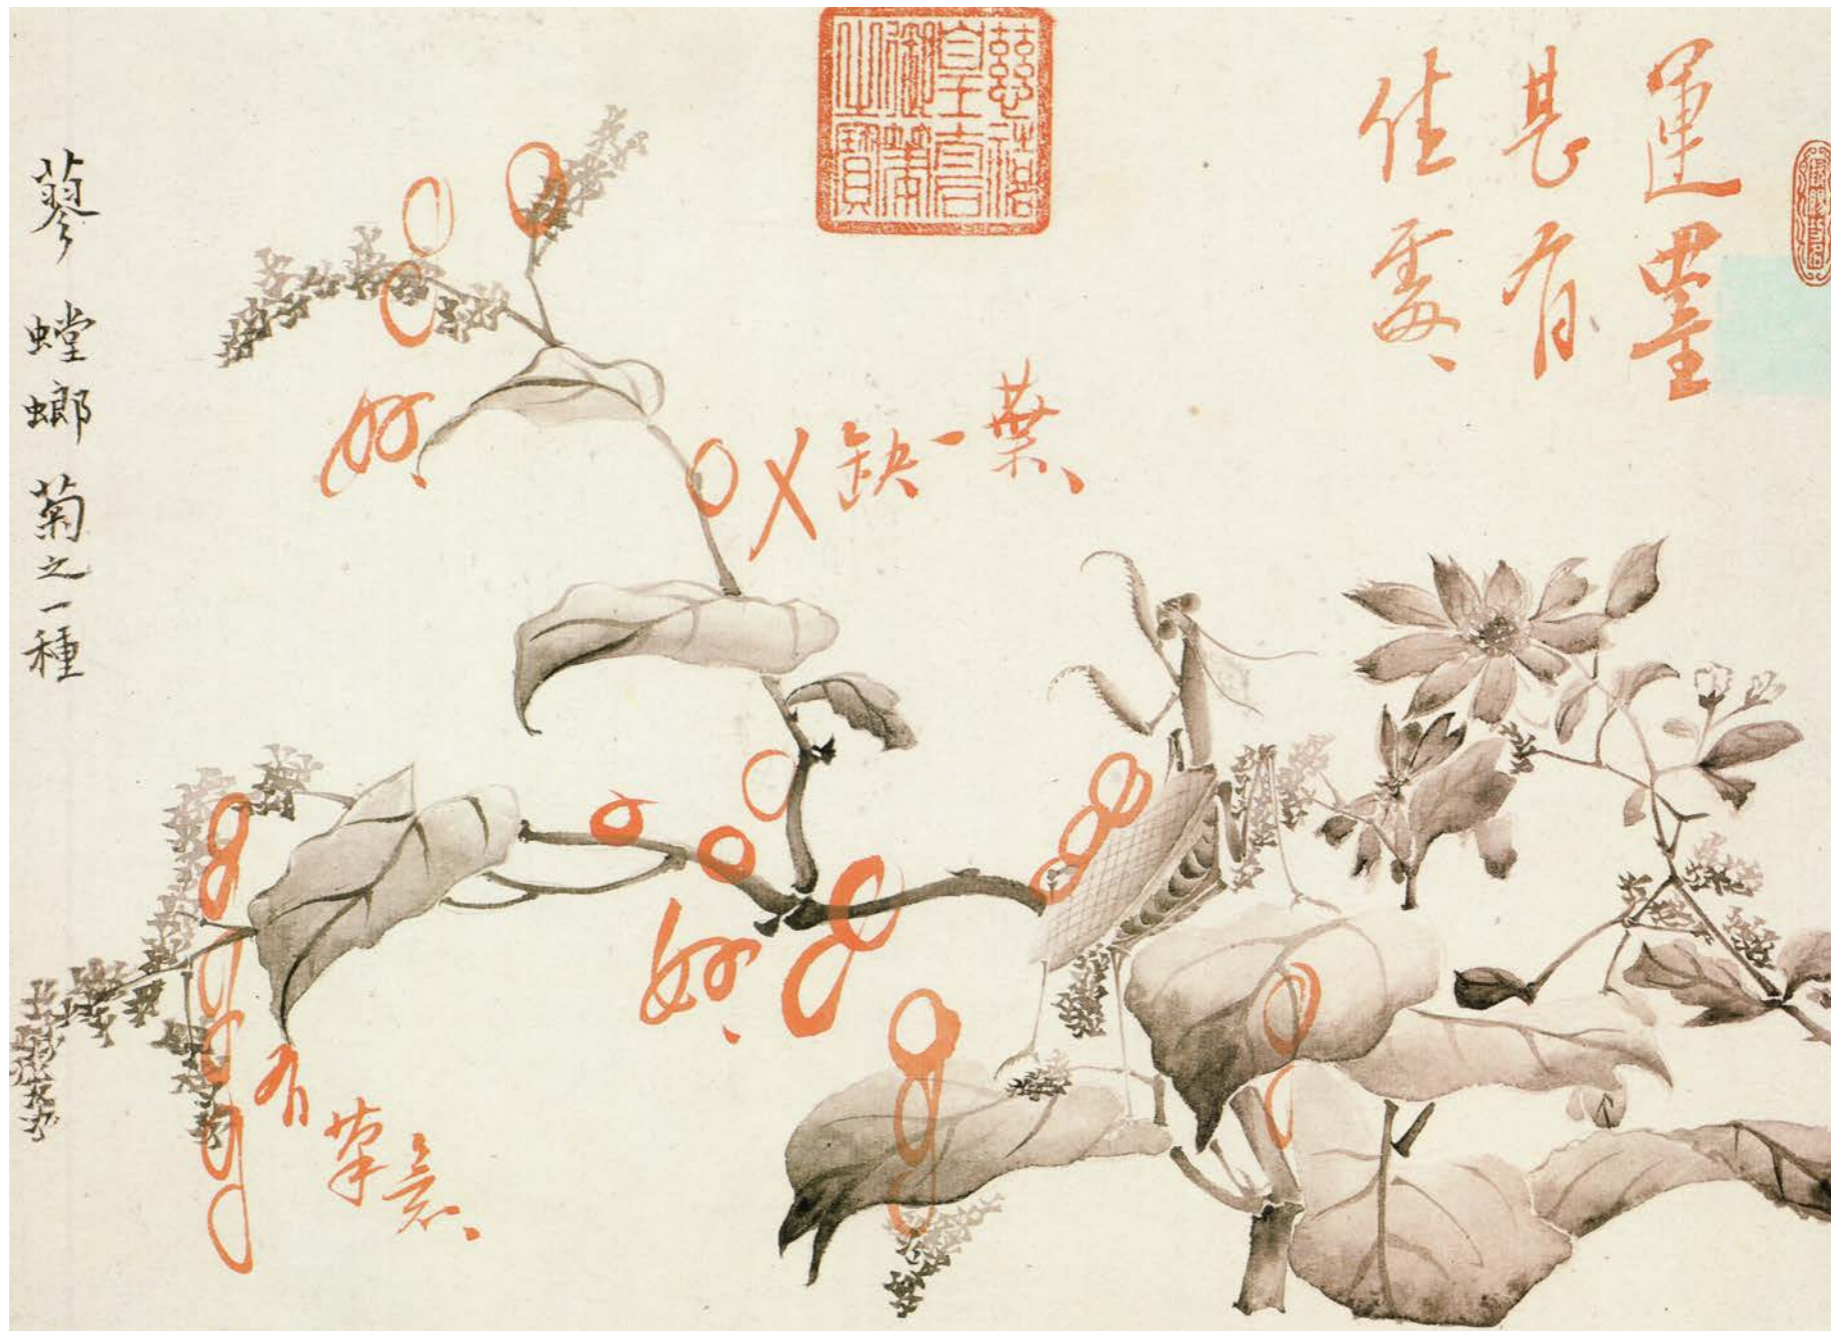 運墨
甚有
佳處
慈禧
皇太后
御筆
之寶
缺一葉
好
好
有筆意
蓼 螳螂 菊之一種